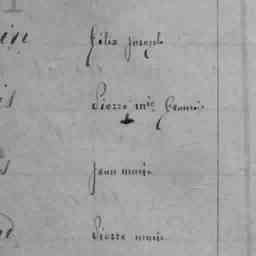 in félix joseph
is Pierre m.ie françois
s jean marie
d Pierre marie